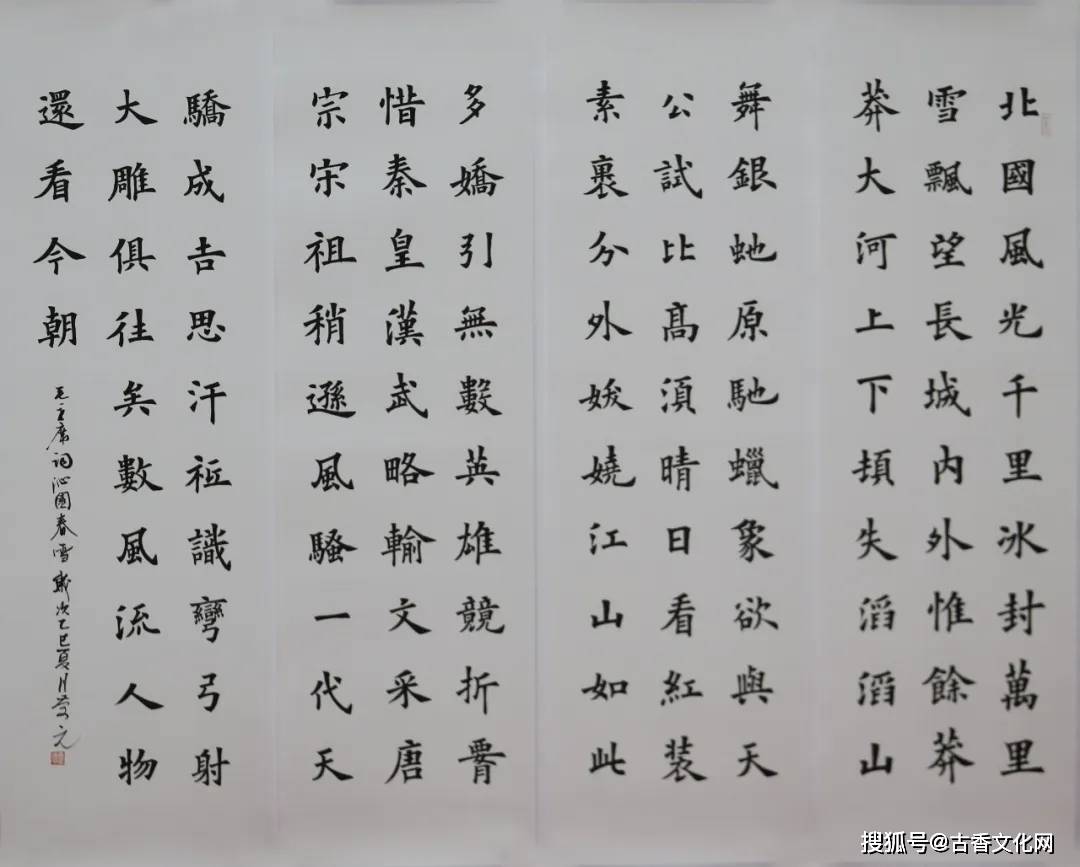 北國風光千里冰封萬里
雪飄望長城內外惟餘莽
莽大河上下頓失滔滔山
舞銀虵原馳蠟象欲與天
公試比高須晴日看紅装
素裹分外妖嬈江山如此
多嬌引無數英雄競折腰
惜秦皇漢武略輸文采唐
宗宋祖稍遜風騷一代天
驕成吉思汗祗識彎弓射
大雕俱往矣數風流人物
還看今朝
毛主席詞沁園春雪歲次乙巳夏月元
搜狐号@古香文化网